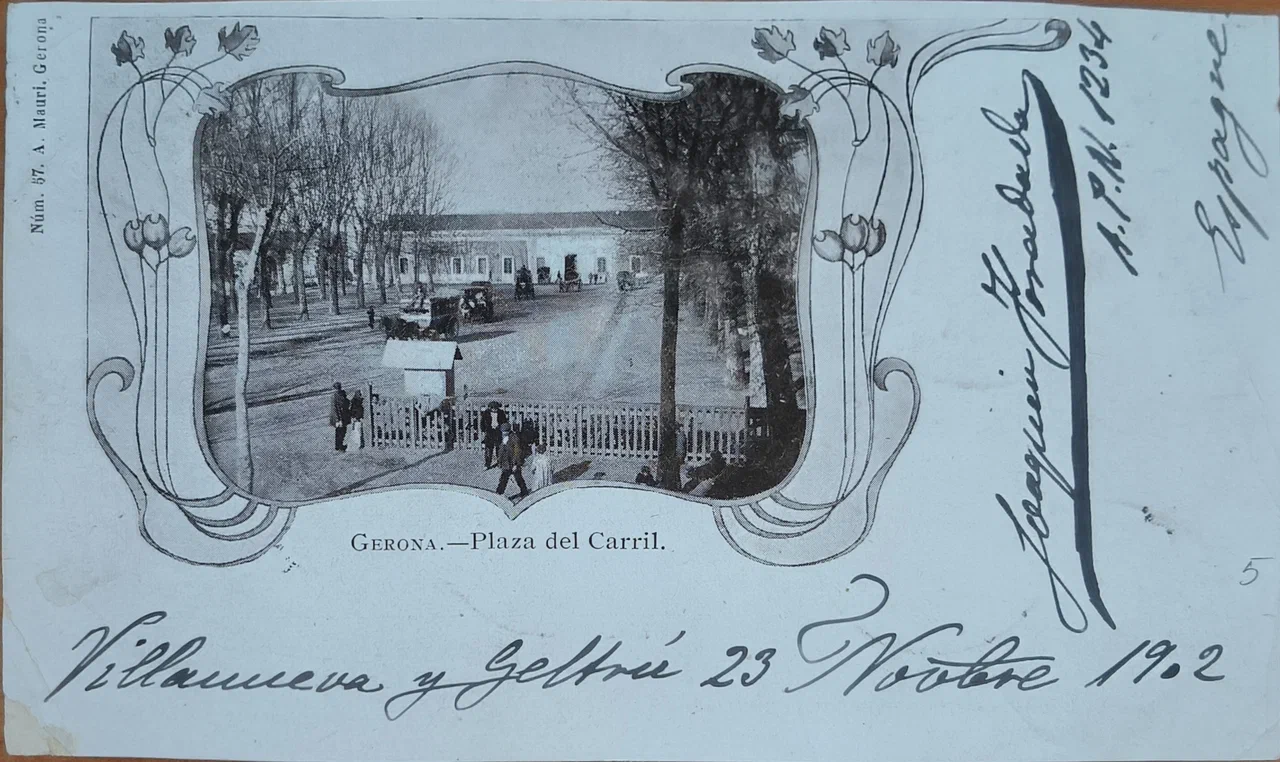 Núm. 57. A. Mauri. Gerona
GERONA.—Plaza del Carril.
Villanueva y Geltrú 23 Novbre 1902
Joaquin
A.P.N. 1234
Espagne
5